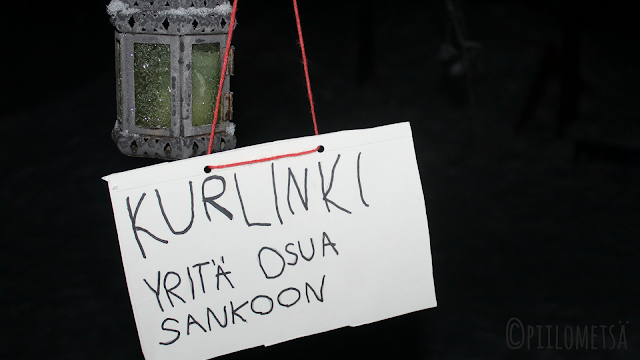 KURLINKI
YRITÄ OSUA
SANKOON
©PIILOMETSÄ